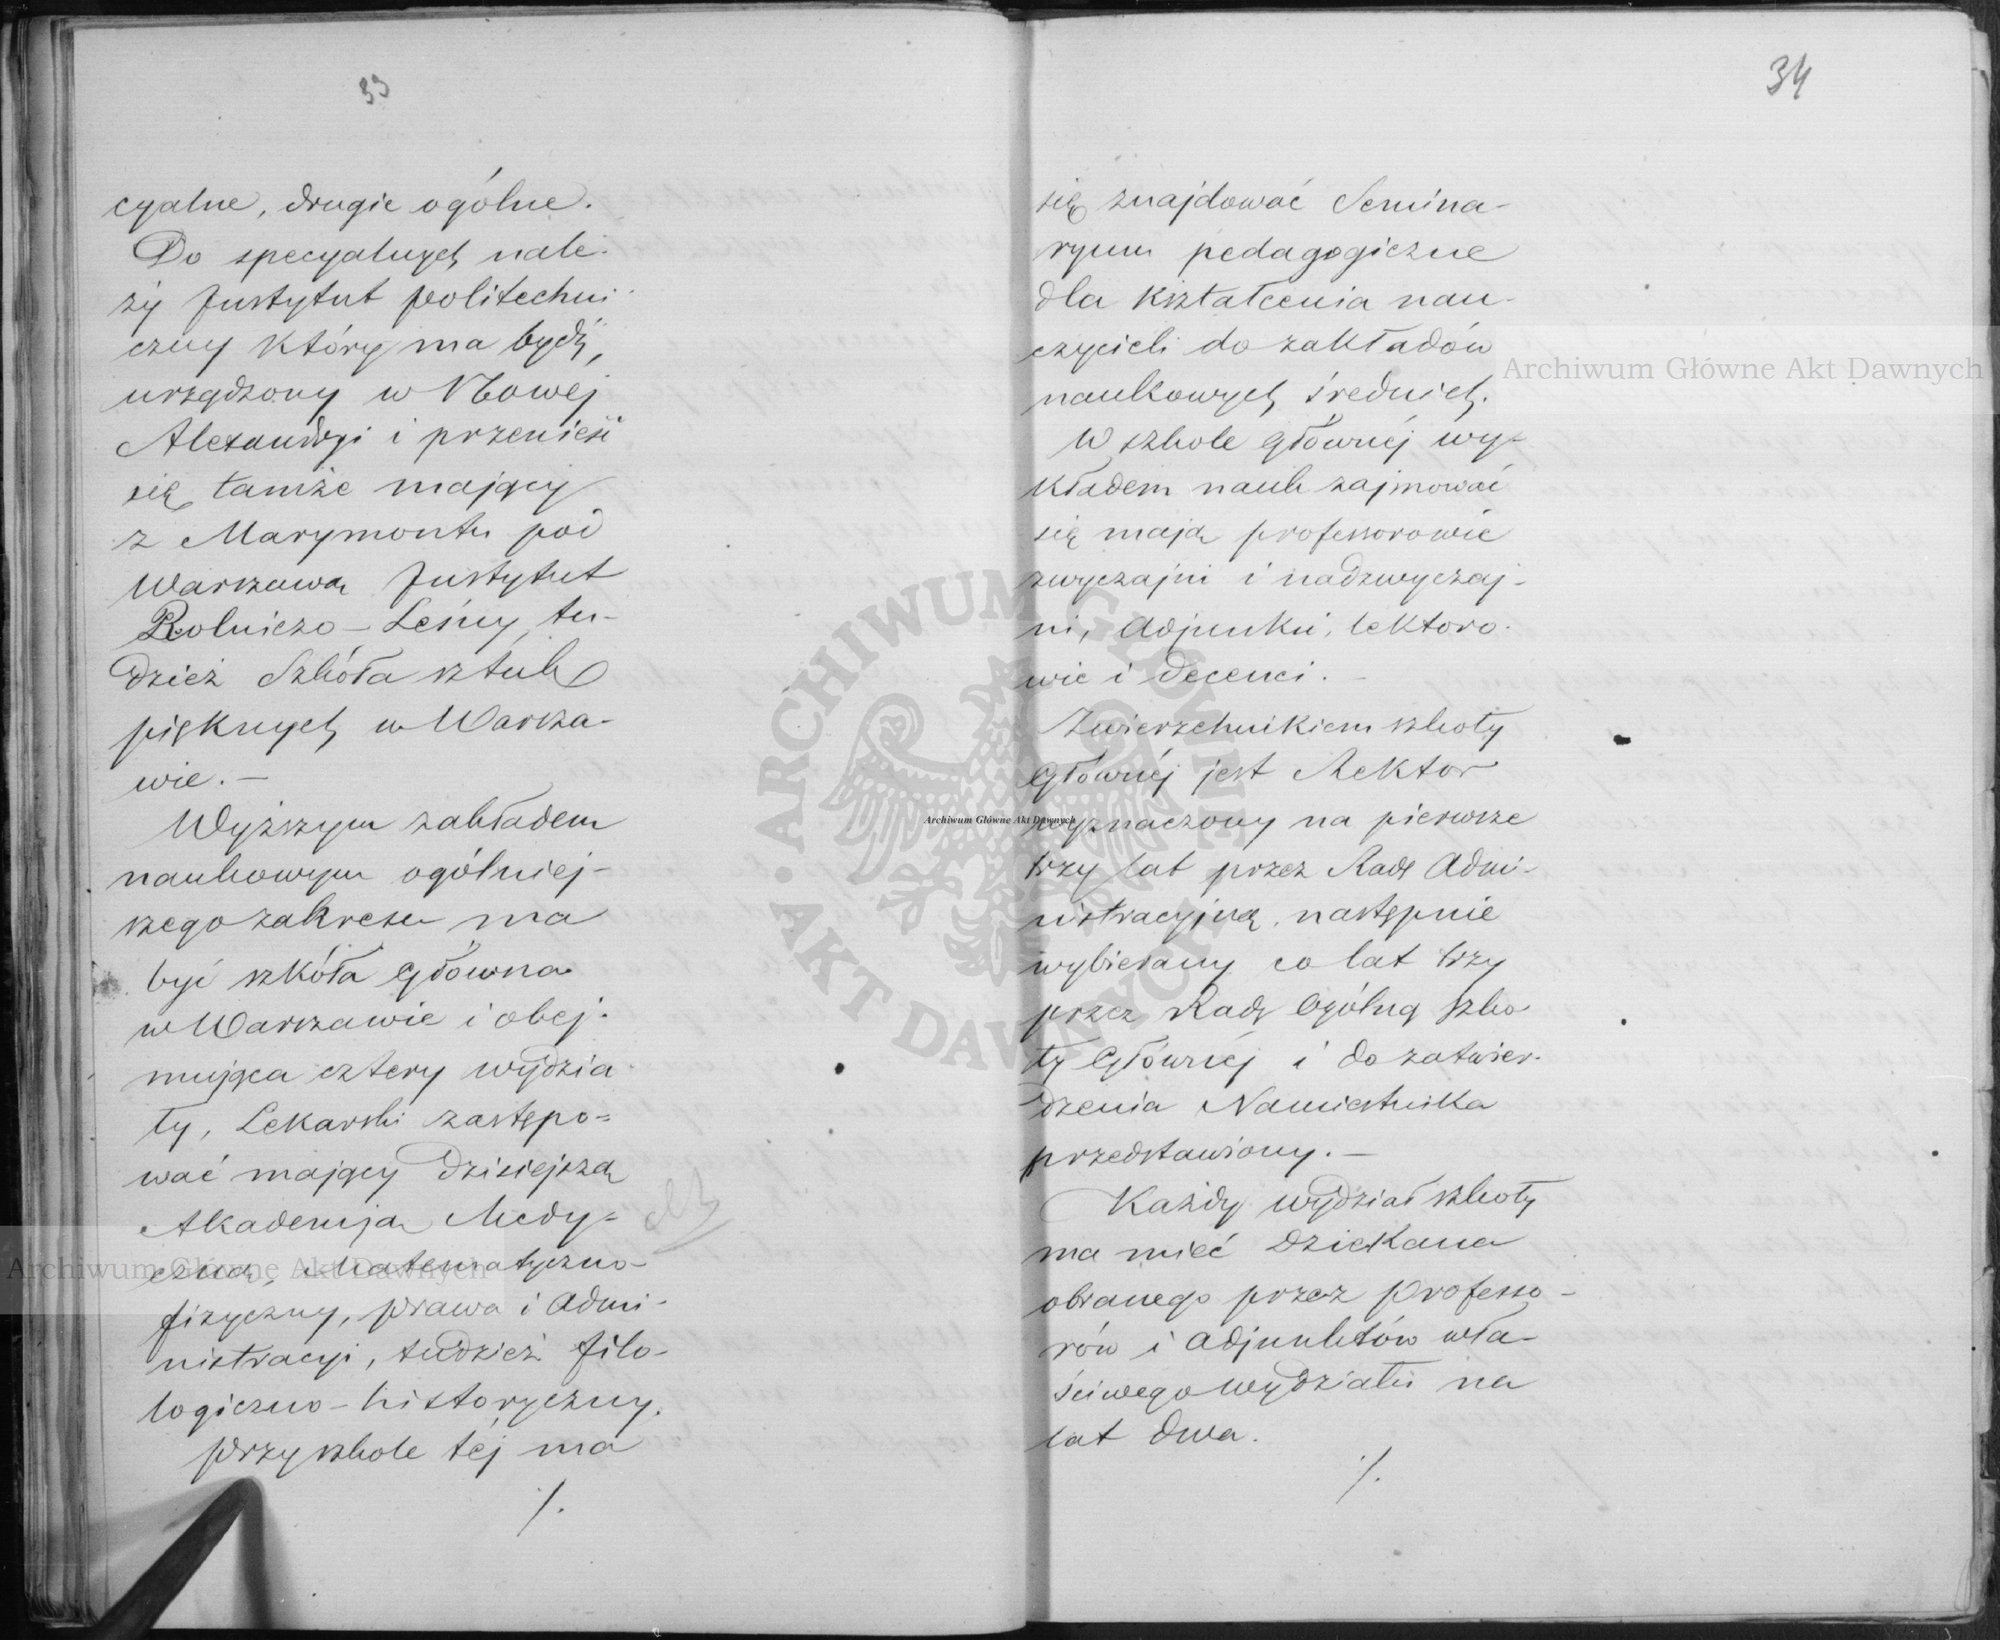 33
cyalne, drugie ogólne.
Do specyalnych nale-
ży Instytut politechni-
czny który ma bydź,
urządzony w Nowej
Alexandryi i przenieść
się tamże mający
z Marymontu pod
Warszawą Instytut
Rolniczo-Leśny, tu-
dzież Szkóła sztuk
pięknych w Warsza-
wie. —
Wyższym zakładem
naukowym ogólniej-
szego zakresu ma
być szkóła Główna
w Warszawie i obej-
mująca cztery wydzia-
ły, Lekarski zastępo=
wać mający dzisiejszą
Akademiją Medy-
czną, Matematyczno-
fizyczny, prawa i Admi-
nistracyi, tudzież filo-
logiczno-historyczny.
przy szkole téj ma
./.
34
się znajdować Semina-
ryum pedagogiczne
dla kształcenia nau-
czycieli do zakładów
naukowych średnich.
W szkole głównéj wy-
kładem nauk zajmować
się mają professorowie
zwyczajni i nadzwyczaj-
ni, Adjunkci, lektoro-
wie i Decenci. —
Zwierzchnikiem szkoły
Głównéj jest Rektor
wyznaczony na pierwsze
trzy lat przez Radę Admi-
nistracyjną, następnie
wybierany co lat trzy
przez Radę Ogólną szko
ły Głównéj i do zatwier-
dzenia Namiestnika
przedstawiony. —
Każdy wydział szkoły
ma mieć Dziekana
obranego przez professo-
rów i adjunktów wła-
ściwego wydziału na
lat dwa.
./.
Archiwum Główne Akt Dawnych
Archiwum Główne Akt Dawnych
Archiwum Główne Akt Dawnych
ARCHIWUM GŁÓWNE AKT DAWNYCH